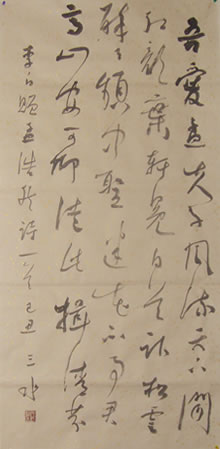 吾愛孟夫子風流天下聞
紅顏棄軒冕白首臥松雲
醉月頻中聖迷花不事君
高山安可仰徒此揖清芬
李白贈孟浩然詩一首己丑三水